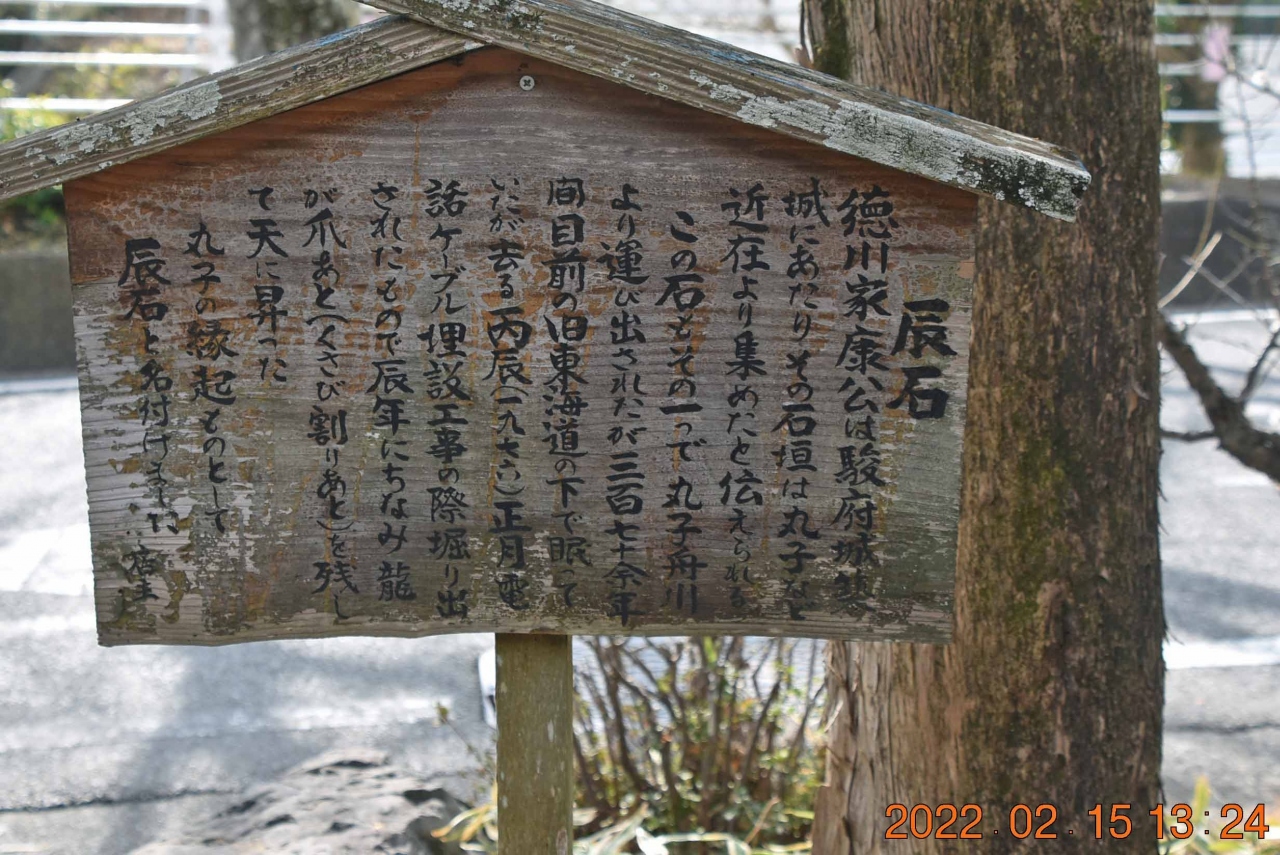 辰石
徳川家康公は駿府城築
城にあたりその石垣は丸子など
近在より集めたと伝えられる
この石もその一つで丸子舟川
より運び出されたが三百七十余年
間目前の旧東海道の下で眠って
いたが去る丙辰(一九七六)正月電
話ケーブル埋設工事の際堀り出
されたもので辰年にちなみ龍
が爪あと(くさび割りあと)を残し
て天に昇った
丸子の縁起ものとして
辰石と名付けました
店主
2022.02.15 13:24